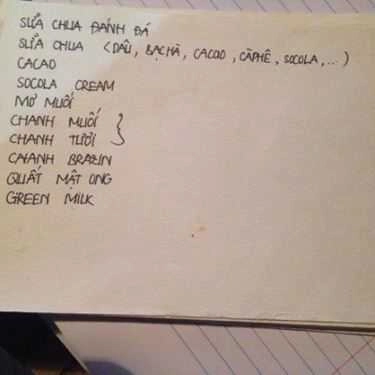 SỮA CHUA ĐÁNH ĐÁ
SỮA CHUA (DÂU, BẠC HÀ, CACAO, CÀPHÊ, SOCOLA,...)
CACAO
SOCOLA CREAM
MƠ MUỐI
CHANH MUỐI
CHANH TƯƠI
CHANH BRAZIN
QUẤT MẬT ONG
GREEN MILK